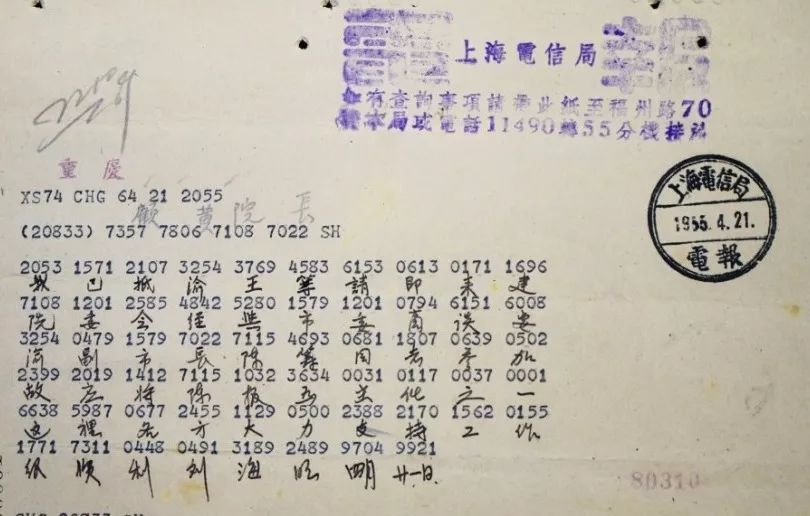 上海電信局
如有查詢事項請帶此紙至福州路70
號本局或電話11490轉55分機接洽
重慶
XS74 CHG 64 21 2055
顧黃院長
(20833) 7357 7806 7108 7022 SH
上海電信局
1955.4.21.
電報
2053 1571 2107 3254 3769 4583 6153 0613 0171 1696
我已抵渝王等請即来建
7108 1201 2585 4842 5280 1579 1201 0794 6151 6008
院委会经與市委商谈要
3254 0479 1579 7022 7115 4693 0681 1807 0639 0502
渝副市長陈筹同志参加
2399 2019 1412 7115 1032 3634 0031 0117 0037 0001
故应将陈报为主任之一
6638 5987 0677 2455 1129 0500 2388 2170 1562 0155
这裡各方大力支持工作
1771 7311 0448 0491 3189 2489 9704 9921
很順利到海旺四月廿一日
80310